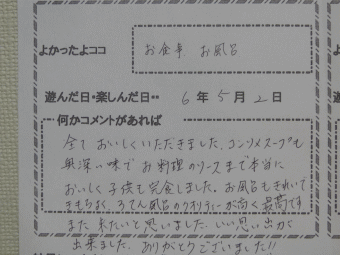 よかったよココ お食事 お風呂
遊んだ日・楽しんだ日・・ 6年5月2日
何かコメントがあれば
全ておいしくいただきました。コンソメスープも
奥深い味でお料理のソースまで本当に
おいしく子供も完食しました。お風呂もきれいで
きもちよく、ろてん風呂のクオリティーが高く最高です
また来たいと思いました。いい思い出が
出来ました。ありがとうございました!!